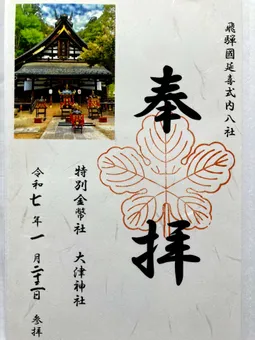 飛騨國延喜式内八社
奉拝
特別金幣社 大津神社
令和七年一月二十三日 参拝